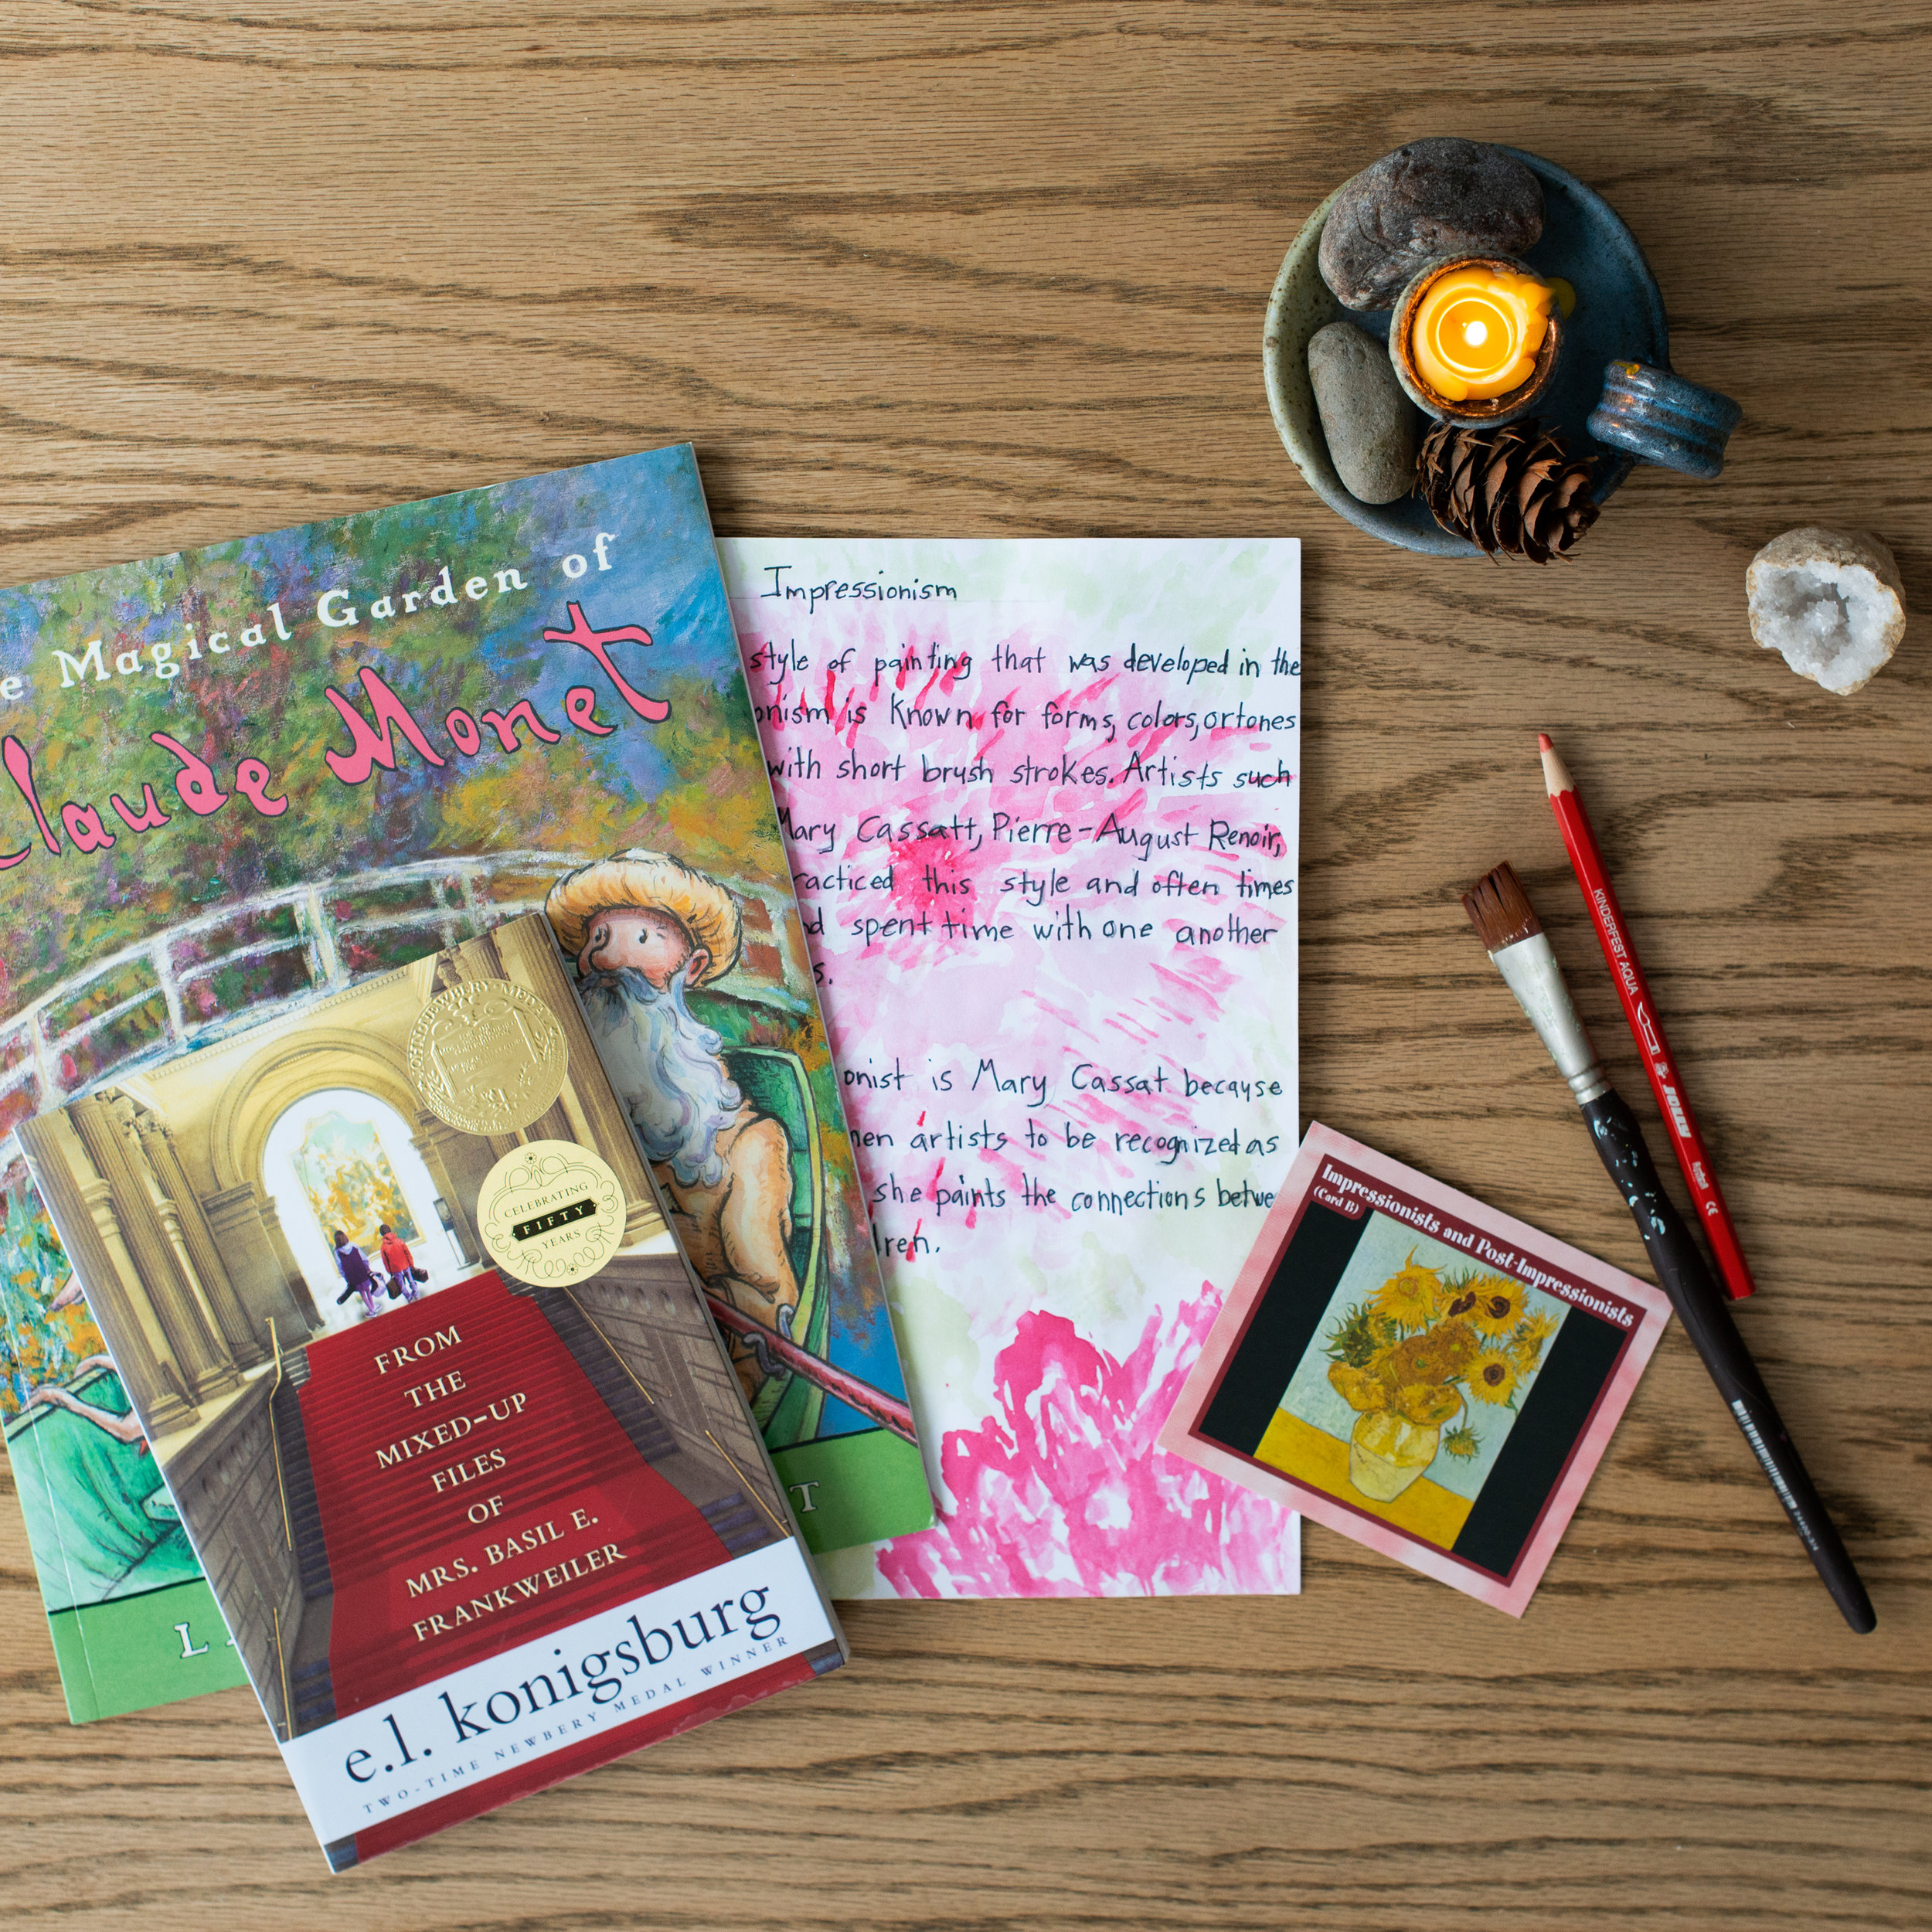 Magical Garden of
Claude Monet
NEWBERY MEDAL
CELEBRATING
FIFTY
YEARS
FROM
THE
MIXED-UP
FILES
OF
MRS. BASIL E.
FRANKWEILER
e.l. konigsburg
TWO-TIME NEWBERY MEDAL WINNER
Impressionism
style of painting that was developed in the
onism is known for forms, colors, or tones
with short brush strokes. Artists such
Mary Cassatt, Pierre-August Renoir,
racticed this style and often times
spent time with one another
s.
onist is Mary Cassat because
men artists to be recognized as
she paints the connections betwe
ldren.
Impressionists and Post-Impressionists
(Card B)
KINDERFEST AQUA
JOLLY